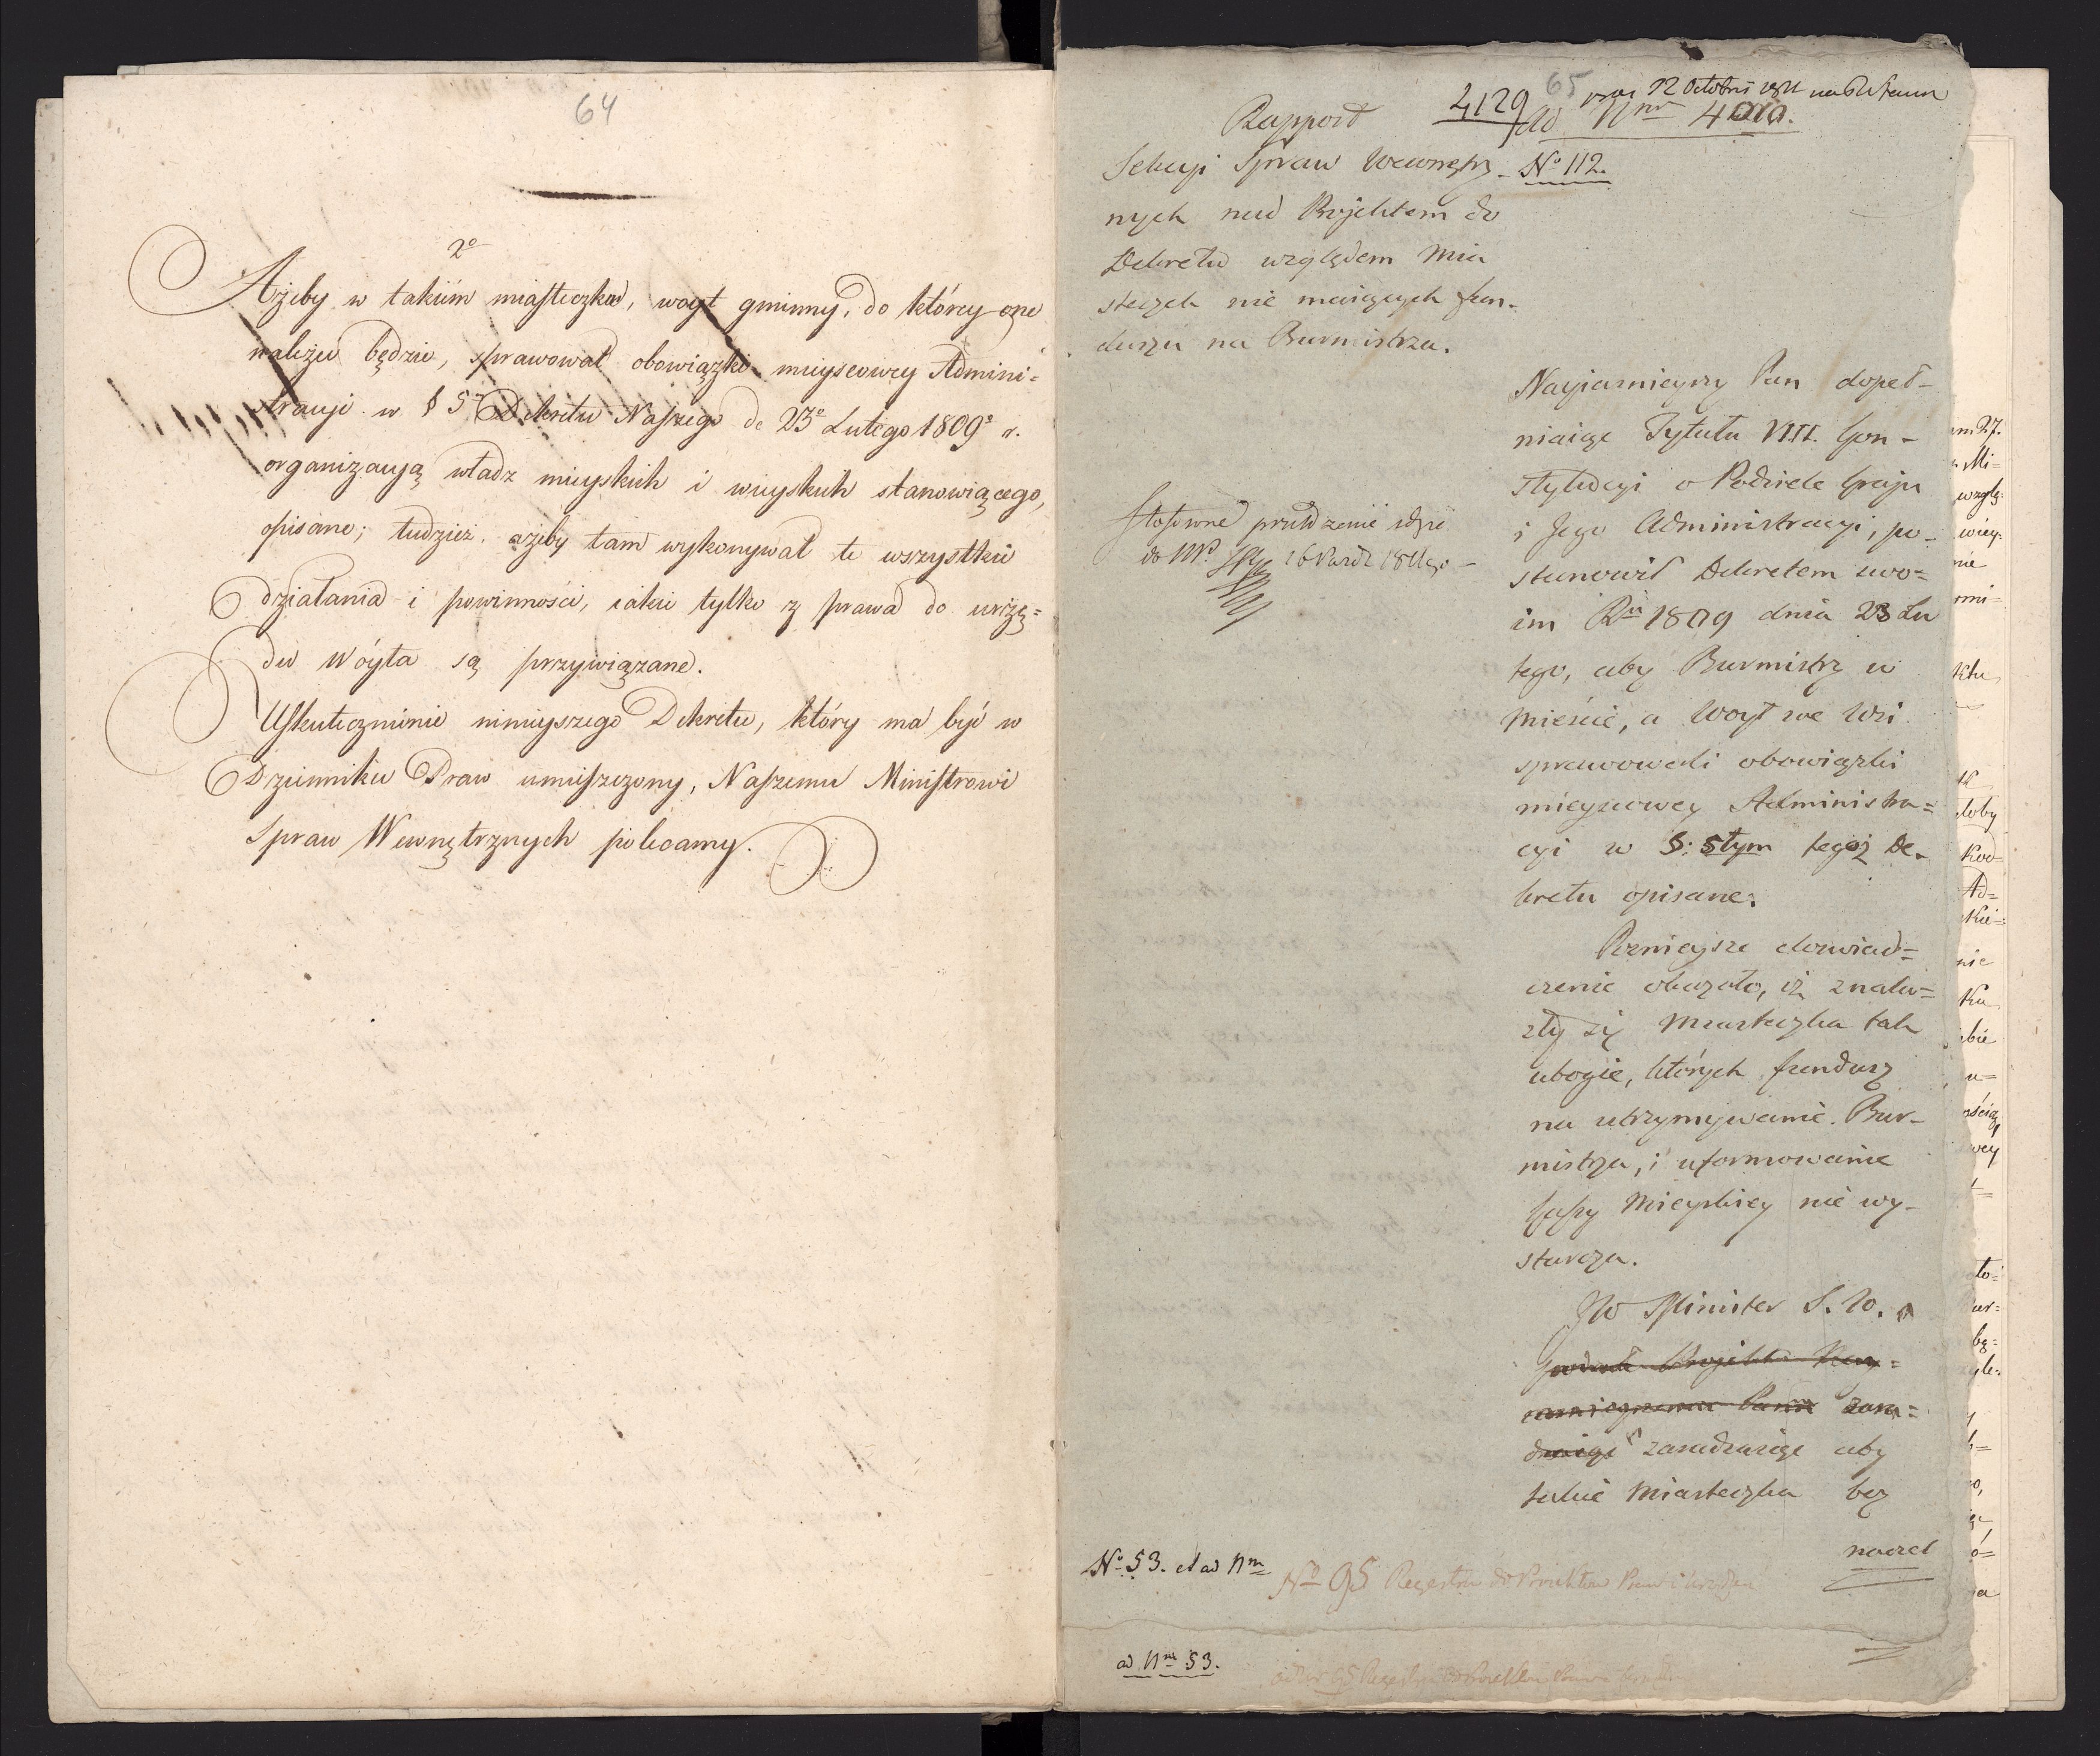 64
2o
Ażeby w takiim miasteczku, woyt gminny, do którey one
należeć będzie, sprawował obowiązki mieyscowey Admini=
stracyi w § 5m Dekretu Naszego de 23o Lutego 1809o r.
organizacyą władz mieyskich i wieyskich stanowiącego,
opisane; tudzież, ażeby tam wykonywał te wszystkie
działania i powinności, iakie tylko z prawa do urzę=
du Wóyta są przywiązane.
Uskutecznienie ninieyszego Dekretu, który ma być w
Dzienniku Praw umieszczony, Naszemu Ministrowi
Spraw Wewnętrznych polecamy.
65
4129
12 Octobris 1811 na Rt Stanu
Rapport
ad Nrm
Sekcyi Spraw Wewnętrz-
No 112.
nych nad Projektem do
Dekretu względem Mia
steczek nie maiących fun-
duszu na Burmistrza.
Nayiaśnieyszy Pan dopeł-
niaiąc Tytułu VIII. Kon-
stytucyi o Podziele Kraju
i Jego Administracyi, po-
stanowił Dekretem swo=
im Ru 1809 dnia 23 Lu
tego, aby Burmistrz w
Mieście, a Woyt we Wsi
sprawowali obowiązki
mieyscowey Administra=
cyi w §: 5tym tegoż De-
kretu opisane.
Stosowne
do
16 Paźdz 1811 go
Pozniejsze doswiad=
czenie okazało, iż znala=
zły się Miasteczka tak
ubogie, których fundusz
na utrzymywanie Bur-
mistrza, i uformowanie
Kassy Mieyskiey nie wy-
starcza.
JW Minister S. W.
podał Projekt Nay=
iaśnieyszemu Panu zasa=
dzaiąc zasadzaiąc aby
takie Miasteczka bez
nazad
No 53. et ad Nm
No 95 Regestru do Proiektow Praw i Urządzeń
ad Nm 53.